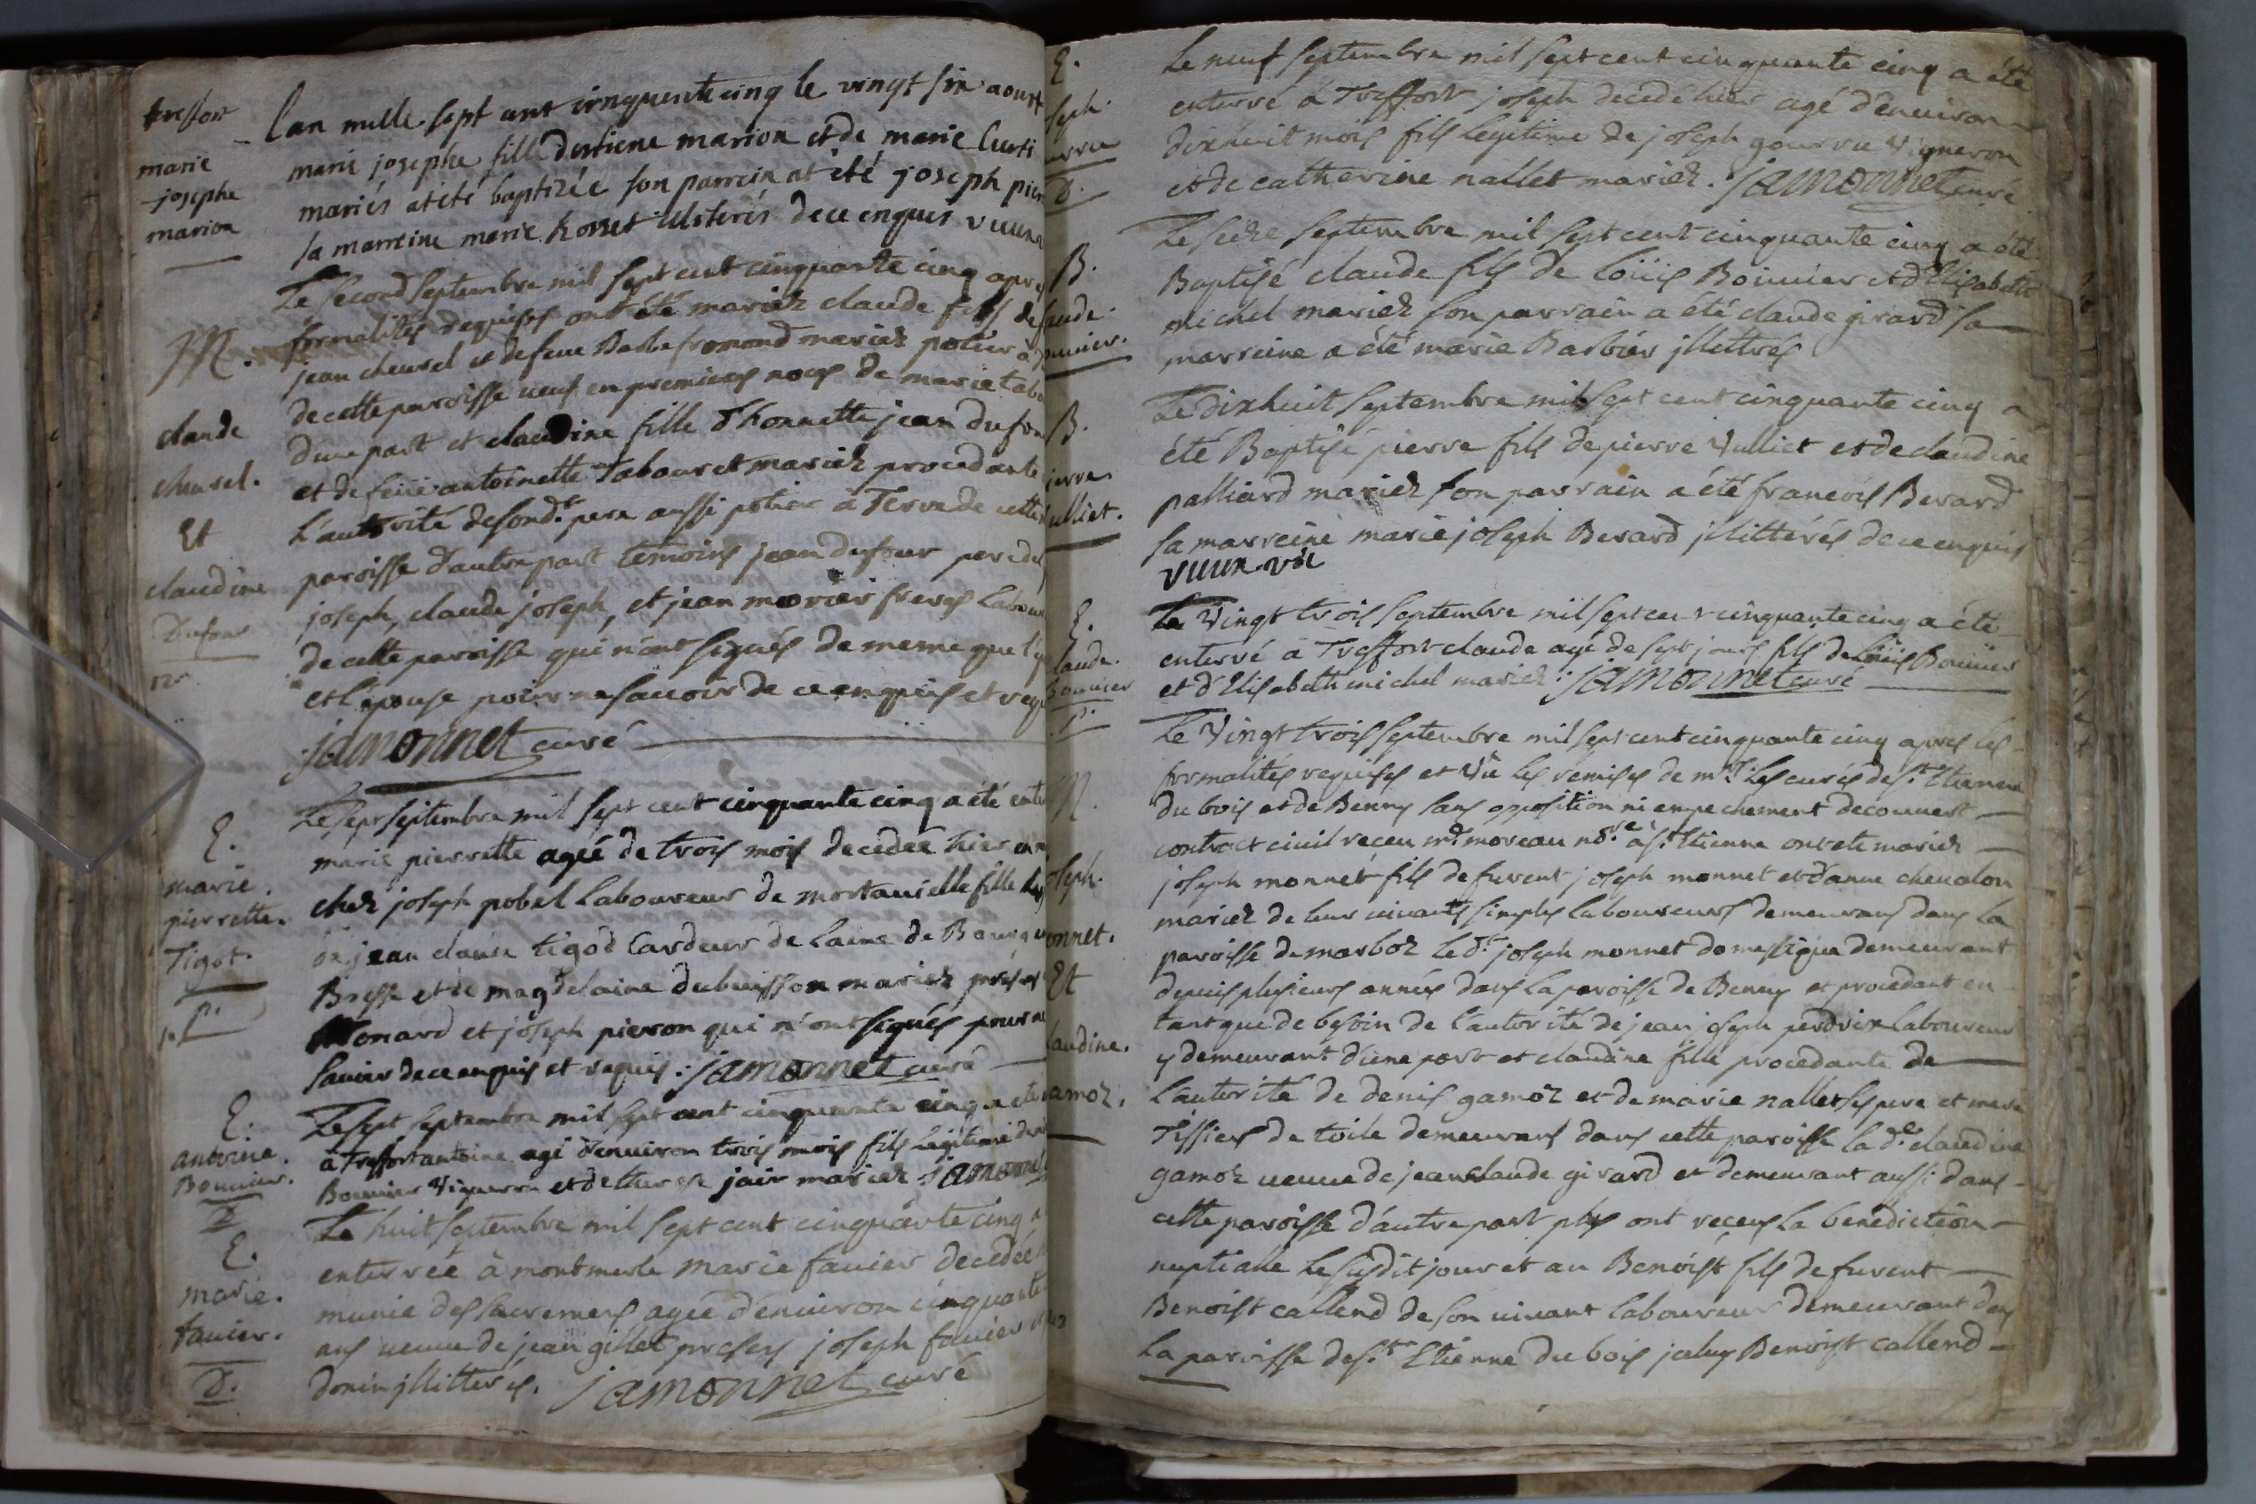 treffort
marie
josephe
marion
lan mille sept cent cinquente cinq le vingt six aoust
marie josephe fille destiene marion et de marie Curti
mariés at été baptizée son parrein at été joseph pier
sa marreine marie hosset illsterés de ce enquis
M.
claude
cheusel.
Et
claudine
Dufour
Le second septembre mil sept cent cinquante cinq apre
formalités requises ont été mariez claude fils de
jean cheusel et de feue Barbe fromond mariez potier à
de cette paroisse veuf en premieres noces de marie tabo
d'une part et claudine fille d'honnette jean dufou
et de feüe antoinette Tabouret mariez procedante
l'autorité de son d.t pere aussi potier à Terve de cette
paroisse d'autre part temoins jean dufour pere du
joseph, claude joseph, et jean morier freres labour
de cette paroisse qui n'ont signés de meme que l'ep
et l'epouse pour ne sauoir de ce enquis et requ
jamonnet curé
E.
marie.
pierrette.
Tigot.
p.
Le sept septembre mil sept cent cinquante cinq a été ente
marie pierrette ageé de trois mois decedée hier en n
chez joseph pobel laboureur de mortauielle fille
de jean claude tigod Cardeur de laine de Bourg en
Bresse et de magdelaine dubuisson mariez présens
Monard et joseph pieron qui n'ont signés pour ne
sauoir de ce enquis et requis: jamonnet curé
E.
antoine.
Bouuier.
D
Le sept septembre mil sept cent cinquante cinq a été
à Treffort antoine agé d'enuiron trois mois fils legitime de
Bouuier Vigneron et de therese jair mariez jamonnet
E.
marie.
fauier.
D.
Le huit septembre mil sept cent cinquante cinq a
enterrée à montmerle marie fauier decedée
munie des sacremens agée d'enuiron cinquante
ans veuue de jean gillet presens joseph fauier
donin jllitterés. jamonnet curé
E.
seph.
urru
D.
Le neuf septembre mil sept cent cinquante cinq a été
enterré à Treffort joseph decedé hier agé d'enuiron
dixhuit mois fils legitime de joseph gourru Vigneron
et de catherine nallet mariez. jamonnet curé
B.
aude.
uuier.
Le seize septembre mil sept cent cinquante cinq a été
Baptisé claude fils de loüis Bouuier et d'Elisabeth
michel mariez son parrain a été claude girard sa
marreine a été marie Barbier jllettrés
B.
ierre
ulliet.
Le dixhuit septembre mil sept cent cinquante cinq a
été Baptisé pierre fils de pierre Vulliet et de claudine
palliard mariez son parrain a été francois Berard
sa marreine marie joseph Berard jllittérés de ce enquis
E.
laude.
Bouuier
p.
Le Vingt trois septembre mil sept cent cinquante cinq a été
enterré à Treffort claude agé de sept jours fils de loüis Bouuier
et d'Elisabeth michel mariez: jamonnet curé
M.
oseph.
onnet.
Et
laudine.
amoz.
Le Vingt trois septembre mil sept cent cinquante cinq apres les
formalités requises et Vû les remises de m.rs les curés de s.t Etienne
du bois et de Benny sans opposition ni empechement decouuert
contract ciuil receu m.e moreau no.re à s.t Etienne ont été mariez
joseph monnet fils de furent joseph monnet et d'anne cheualon
mariez de leur uiuants simples laboureurs demeurans dans la
paroisse de marboz le d.t joseph monnet domestique demeurant
depuis plusieurs années dans la paroisse de Benny et procedant en
tant que de besoin de l'autorité de jean joseph perdrix laboureur
y demeurant d'une part et claudine fille procedante de
l'autorité de denis gamoz et de marie nallet ses pere et mere
Tissiers de toile demeurans dans cette paroisse la d.te claudine
gamoz ueuue de jean claude girard et demeurant aussi dans
cette paroisse d'autre part plus ont receus la benediction
nuptialle le susdit jour et an Benoist fils de furent
Benoist callend de son uiuant laboureur demeurant dans
la paroisse de s.t Etienne du bois jceluy Benoist callend